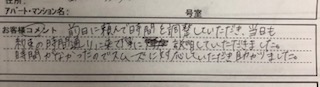 アパート・マンション名: 号室
お客様コメント 前日に頼んで時間を調整していただき、当日も
約束の時間通りに来て優に 説明していただきました。
時間がなかったのでスムーズに対応していただき助かりました。